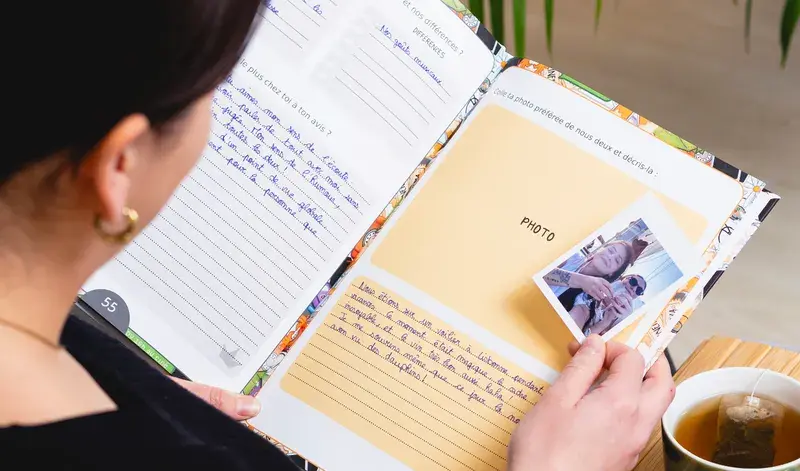 et nos différences ?
DIFFÉRENCES
Nos goûts musicaux
le plus chez toi à ton avis ?
aimes mon sens de l'écoute
parler de tout avec moi sans
jugée. Mon sens de l'humour,
toutes les deux !
d'un point de vue globale
pour la personne que
55
Colle ta photo préférée de nous deux et décris-la :
PHOTO
Nous étions sur un voilier à Lisbonne pendant
le moment était magique le cidre
incroyable, et le vin très bon aussi haha !
Je me souviens même que ce jour là nous
avons vu des dauphins !